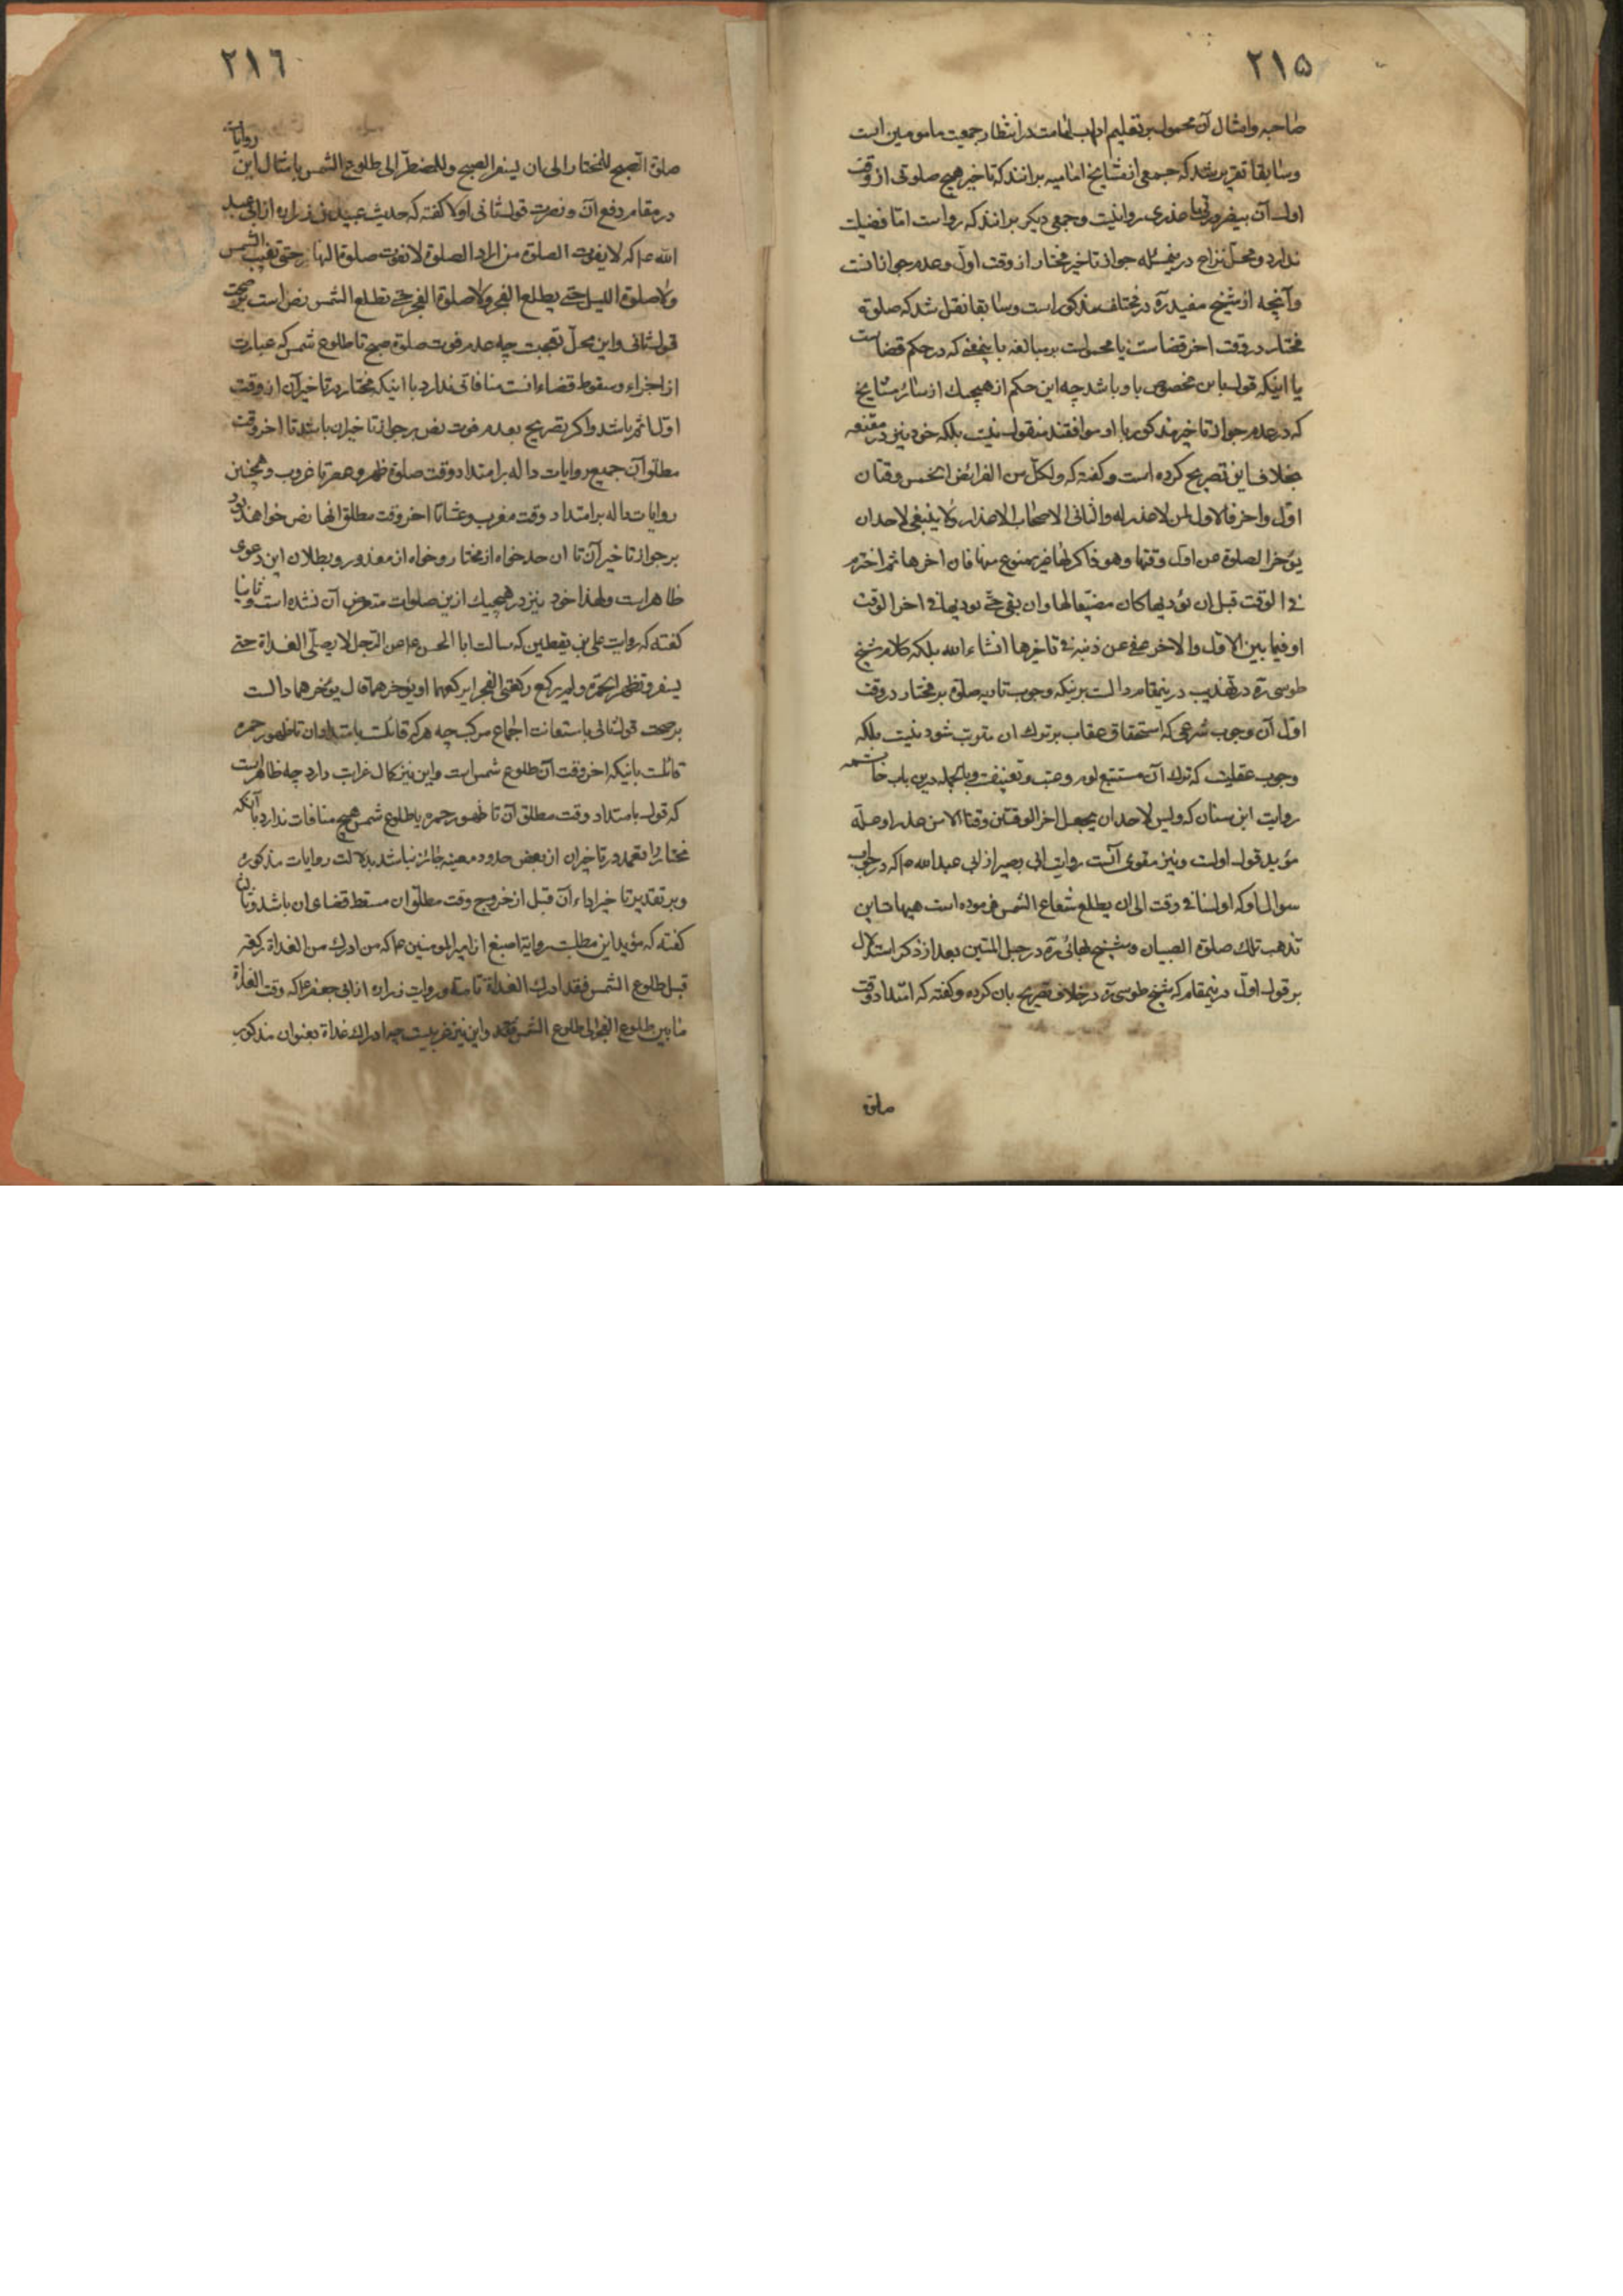 ۲۱۵
صاحبه وامثال آن محمول بر تعلیم اداب امامت در انتظار جمعیت مامومین است
وسابقا تقریر شد که جمعی از مشایخ امامیه برانند که تاخیر هیچ صلوتی از وقت
اول آن بیضرورتی یا عذری روا نیست وجمعی دیکر برانند که رواست اما فضیلت
ندارد ومحل نزاع در ینمسئله جواز تاخیر مختار از وقت اول وعدم جواز انست
وآنچه از شیخ مفید ره در مختلف مذکور است وسابقا نقل شد که صلوة
مختار در وقت اخر قضا است یا محمولست بر مبالغه باینمعنی که در حکم قضا است
یا اینکه قول باین مخصوص باو باشد چه این حکم از هیچیک از سائر مشایخ
که در عدم جواز تاخیر مذکور با او موافقند منقول نیست بلکه خود نیز در مقنعه
بخلاف این تصریح کرده است وکفته که ولکل من الفرائض الخمس وقتان
اول واخر فالاول لمن لا عذر له والثانی لاصحاب الاعذار ولا ینبغی لاحد ان
یؤخر الصلوة عن اول وقتها وهو ذاکر لها غیر ممنوع منها فان اخرها ثم اخترم
فی الوقت قبل ان یؤدیها کان مضیعا لها وان بقی حتی یودیها فی اخر الوقت
او فیما بین الاول والاخر عفی عن ذنبه فی تاخیرها انشاء الله بلکه کلام شیخ
طوسی ره در تهذیب در ینمقام دالست بر ینکه وجوب تادیه صلوة بر مختار در وقت
اول آن وجوب شرعی که استحقاق عقاب بر ترک ان مترتب شود نیست بلکه
وجوب عقلیست که ترک آن مستتبع لوم وعتب وتعنیفست وبالجمله درین باب خاتمه
روایت ابن سنان که ولیس لاحد ان یجعل اخر الوقتین وقتا الا من عذر او علة
مؤید قول اولست ونیز مقوی آنست روایت ابی بصیر از ابی عبدالله ع م که در جواب
سوال او که اولسنا فی وقت الی ان یطلع شعاع الشمس فرموده است هیهات این
تذهب تلک صلوة الصبیان وشیخ بهائی ره در حبل المتین بعد از ذکر استدلال
بر قول اول در ینمقام که شیخ طوسی ره در خلاف تصریح بان کرده وکفته که امتداد وقت
صلوة
۲۱٦
صلوة الصبح للمختار الی ان یسفر الصبح وللمضطر الی طلوع الشمس بامثال این روایات
در مقام دفع آن ونصرت قول ثانی اولا کفته که حدیث عبید بن زراره از ابی عبد
الله ع م که لا یفوت الصلوة من اراد الصلوة لا تفوت صلوة النهار حتی تغیب الشمس
ولا صلوة اللیل حتی یطلع الفجر ولا صلوة الفجر حتی تطلع الشمس نص است بر صحت
قول ثانی واین محل تعجبست چه عدم فوت صلوة صبح تا طلوع شمس که عبارت
از اجزاء وسقوط قضاء انست منافاتی ندارد با اینکه مختار در تاخیر آن از وقت
اول اثم باشد واکر تصریح بعدم فوت نص بر جواز تاخیر ان باشد تا اخر وقت
مطلق آن جمیع روایات داله بر امتداد وقت صلوة ظهر وعصر تا غروب وهمچنین
روایات داله بر امتداد وقت مغرب وعشا تا اخر وقت مطلق انها نص خواهند بود
بر جواز تاخیر آن تا ان حد خواه از مختار وخواه از معذور وبطلان این دعوی
ظاهر است ولهذا خود نیز در هیچیک ازین صلوات متعرض آن نشده است وثانیا
کفته که روایت علی بن یقطین که سالت ابا الحسن ع عن الرجل لا یصلی الغداة حتی
یسفر وتظهر الحمرة ولم یرکع رکعتی الفجر ایرکعهما او یؤخرهما قال یؤخرهما دالست
بر صحت قول ثانی باستعانت اجماع مرکب چه هر که قائلست بامتداد ان تا ظهور حمره
قائلست بانیکه اخر وقت آن طلوع شمس است واین نیز کمال غرابت دارد چه ظاهر است
که قول بامتداد وقت مطلق آن تا ظهور حمره یا طلوع شمس هیچ منافات ندارد بآنکه
مختار را تعمد در تاخیر ان از بعض حدود معینه جائز نباشد بدلالت روایات مذکوره
وبر تقدیر تاخیر اداء آن قبل از خروج وقت مطلق ان مسقط قضاء ان باشد
کفته که مؤید این مطلبست روایة اصبغ از امیر المومنین ع م که من ادرک من الغداة رکعة
قبل طلوع الشمس فقد ادرک الغداة تامة وروایت زراره از ابی جعفر ع م که وقت الغداة
ما بین طلوع الفجر الی طلوع الشمس واین نیز غریبست چه ادراک غداة بعنوان مذکور